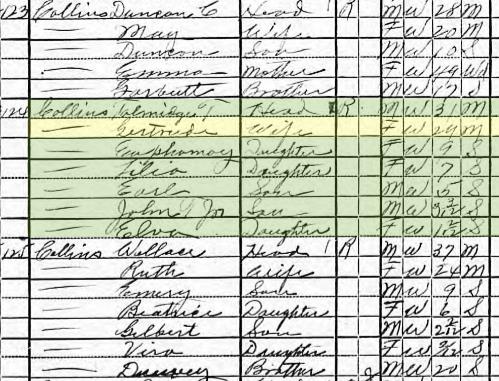 123 Collins Duncan C Head 1 R M W 28 M
— May Wife F W 20 M
— Duncan Son M W 10 S
— Emma Mother F W 49 Wd
— Brother M W 17 S
124 Collins Talmidge T Head R M W 31 M
— Gertrude Wife F W 29 M
— Daughter F W 9 S
— Lilia Daughter F W 7 S
— Earl Son M W 5 S
— John T Jr Son M W S
— Elva Daughter F W S
125 Collins Wallace Head 1 R M W 37 M
— Ruth Wife F W 24 M
— Emery Son M W 9 S
— Beatrice Daughter F W 6 S
— Gilbert Son M W S
— Vira Daughter F W S
— Brother M W 20 S